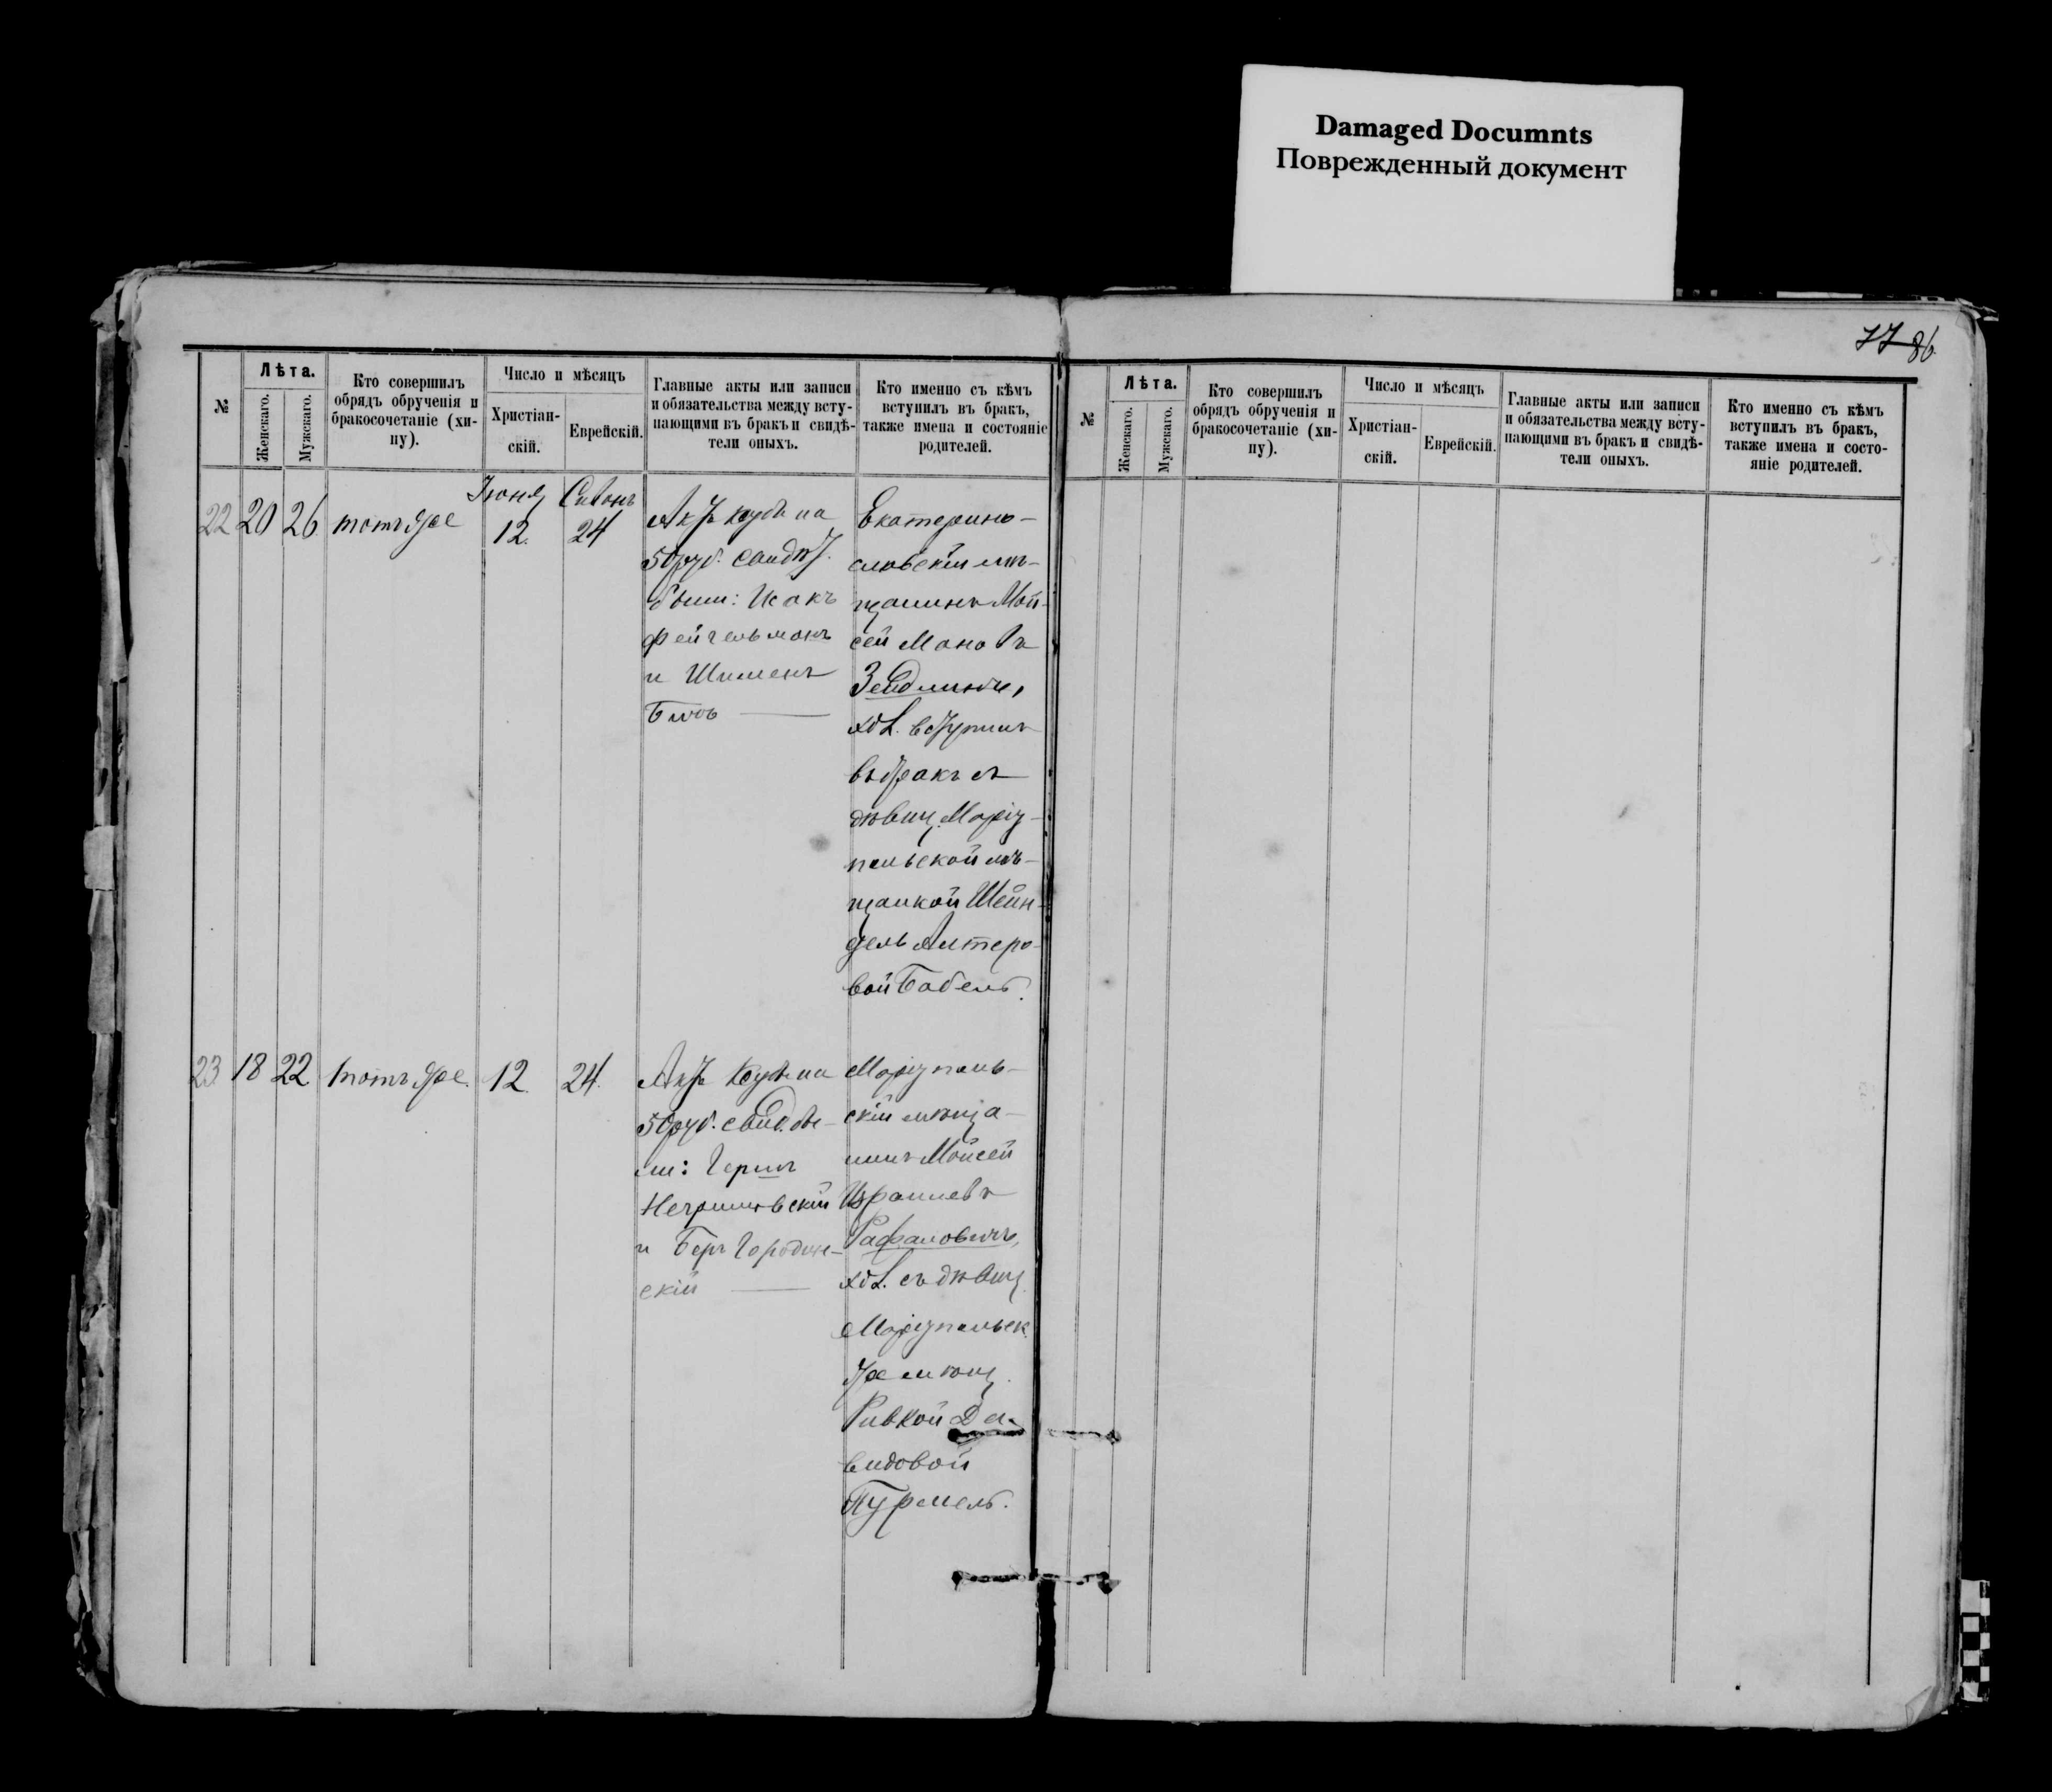 Damaged Documnts
Поврежденный документ
77 86
№
Лѣта.
Женскаго.
Мужскаго.
Кто совершилъ
обрядъ обрученія и
бракосочетаніе (хи-
пу).
Число и мѣсяцъ
Христіан-
скій.
Еврейскій.
Главные акты или записи
и обязательства между всту-
пающими въ бракъ и свидѣ-
тели оныхъ.
Кто именно съ кѣмъ
вступилъ въ бракъ,
также имена и состояніе
родителей.
Іюня Сивонъ
22 20 26 тотъ же 12. 24
на
50 руб.
были: Исакъ
Фейгельманъ
и Шименъ
Екатерино-
славскій мѣ-
щанинъ Мои-
сей Мановъ
хол. вступилъ
въ бракъ съ
дѣвиц. Маріу-
польской мѣ-
щанкой Шейн-
дель Алтеро-
вой Бабель.
23 18 22 тотъ же. 12. 24.
на
50 руб. свид. бы-
ли: Герш
и Беръ Городин-
скій
Маріуполь-
скій мѣща-
нинъ Мойсей
Израилевъ
Рафаловичъ,
хол. съ дѣвиц.
Маріупольск.
же мѣщ.
Ривкой Да-
видовой
№
Лѣта.
Женскаго.
Мужскаго.
Кто совершилъ
обрядъ обрученія и
бракосочетаніе (хи-
пу).
Число и мѣсяцъ
Христіан-
скій.
Еврейскій.
Главные акты или записи
и обязательства между всту-
пающими въ бракъ и свидѣ-
тели оныхъ.
Кто именно съ кѣмъ
вступилъ въ бракъ,
также имена и состо-
яніе родителей.